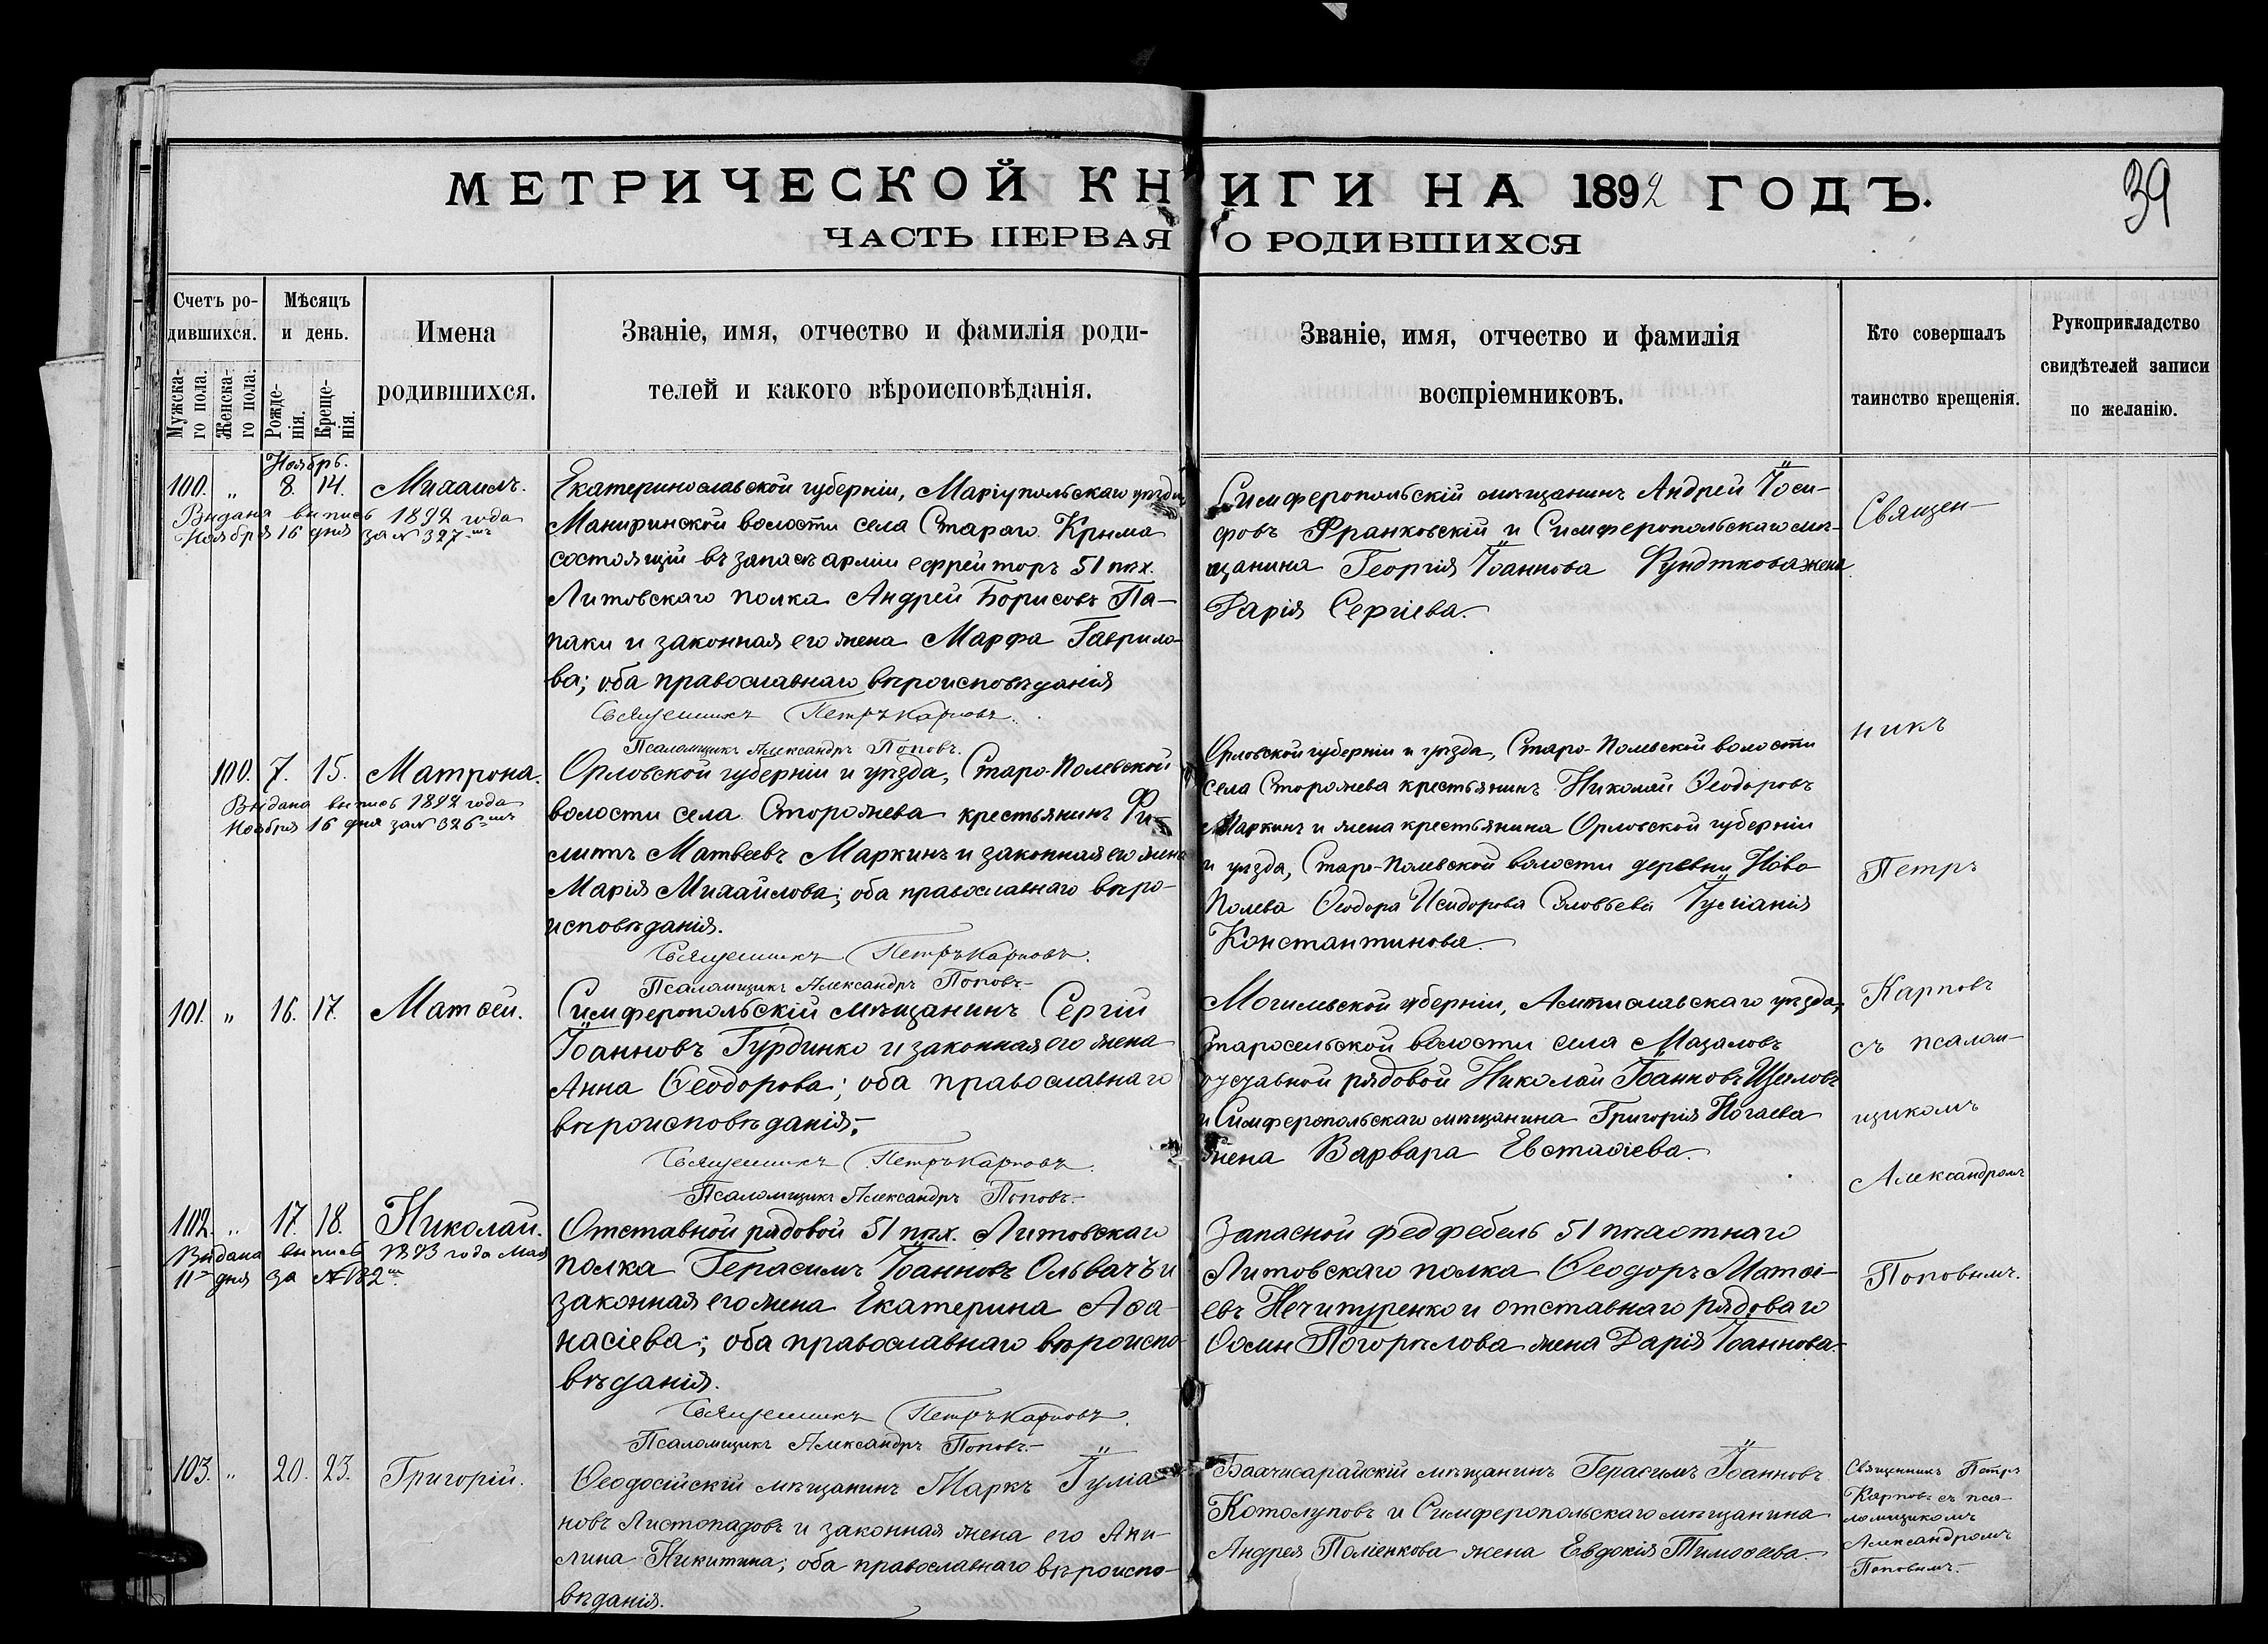 МЕТРИЧЕСКОЙ КНИГИ НА 1892 ГОДЪ.
39
ЧАСТЬ ПЕРВАЯ О РОДИВШИХСЯ
Счетъ ро-
дившихся.
Мужска-
го пола.
Женска-
го пола.
Мѣсяцъ
и день.
Рожде-
нія.
Креще-
нія.
Имена
родившихся.
Званіе, имя, отчество и фамилія роди-
телей и какого вѣроисповѣданія.
Званіе, имя, отчество и фамилія
воспріемниковъ.
Кто совершалъ
таинство крещенія.
Рукоприкладство
свидѣтелей записи
по желанію.
Ноябрь.
100. „ 8. 14. Михаилъ.
Выдана выпись 1892 года
Ноября 16 дня за № 327-мъ
Екатеринославской губерніи, Маріупольскаго уѣзда
Манпринской волости села Стараго Крыма
состоящій въ запасѣ арміи ефрейторъ 51 пѣх.
Литовскаго полка Андрей Борисовъ Па-
паки и законная его жена Марфа Гаврило-
ва; оба православнаго вѣроисповѣданія
Священникъ Петръ Карповъ.
Псаломщикъ Александръ Поповъ.
Симферопольскій мѣщанинъ Андрей Іоси-
фовъ Франковскій и Симферопольскаго мѣ-
щанина Георгія Іоаннова жена
Дарія Сергіева.
Священ-
никъ
Петръ
Карповъ
съ псалом-
щикомъ
Александромъ
Поповымъ.
100. 7. 15. Матрона.
Выдана выпись 1892 года
Ноября 16 дня за № 326-мъ
Орловской губерніи и уѣзда, Старо-Полевской
волости села Сторожева крестьянинъ Фи-
липъ Матвеевъ Маркинъ и законная его жена
Марія Михайлова; оба православнаго вѣро-
исповѣданія.
Священникъ Петръ Карповъ.
Псаломщикъ Александръ Поповъ.-
Орловской губерніи и уѣзда, Старо-Полевской волости
села Сторожева крестьянинъ Николай Ѳеодоровъ
Маркинъ и жена крестьянина Орловской губерніи
и уѣзда, Старо-Полевской волости деревни Ново
Полева Ѳеодора Исидорова Соловьева Іуліанія
Константинова.
101. „ 16. 17. Матѳей.
Симферопольскій мѣщанинъ Сергій
Іоанновъ Гурдинко и законная его жена
Анна Ѳеодорова; оба православнаго
вѣроисповѣданія.
Священникъ Петръ Карповъ.
Псаломщикъ Александръ Поповъ.-
Могилевской губерніи, Амтиславскаго уѣзда,
Старосельской волости села Мазаловъ
отставной рядовой Николай Іоанновъ
и Симферопольскаго мѣщанина Григорія Ногаева
жена Варвара Евстаѳіева.
102. „ 17. 18. Николай.
Выдана выпись 1893 года Мая
11 дня за № 182
Отставной рядовой 51 пѣх. Литовскаго
полка Герасимъ Іоанновъ Ольвачъ и
законная его жена Екатерина Аѳа-
насіева; оба православнаго вѣроиспо-
вѣданія.
Священникъ Петръ Карповъ.
Псаломщикъ Александръ Поповъ.-
Запасной федфебель 51 пѣхотнаго
Литовскаго полка Ѳеодоръ Матѳі-
евъ Нечипуренко и отставнаго рядоваго
Погорѣлова жена Дарія Іоаннова.
103. „ 20. 23. Григорій.
Ѳеодосійскій мѣщанинъ Маркъ Іуліа-
новъ Листопадовъ и законная жена его Аки-
лина Никитина; оба православнаго вѣроиспо-
вѣданія.
Бахчисарайскій мѣщанинъ Герасимъ Іоанновъ
Котолуповъ и Симферопольскаго мѣщанина
Андрея Поліенкова жена Евдокія Тимоѳеева.
Священникъ Петръ
Карповъ съ пса-
ломщикомъ
Александромъ
Поповымъ.-